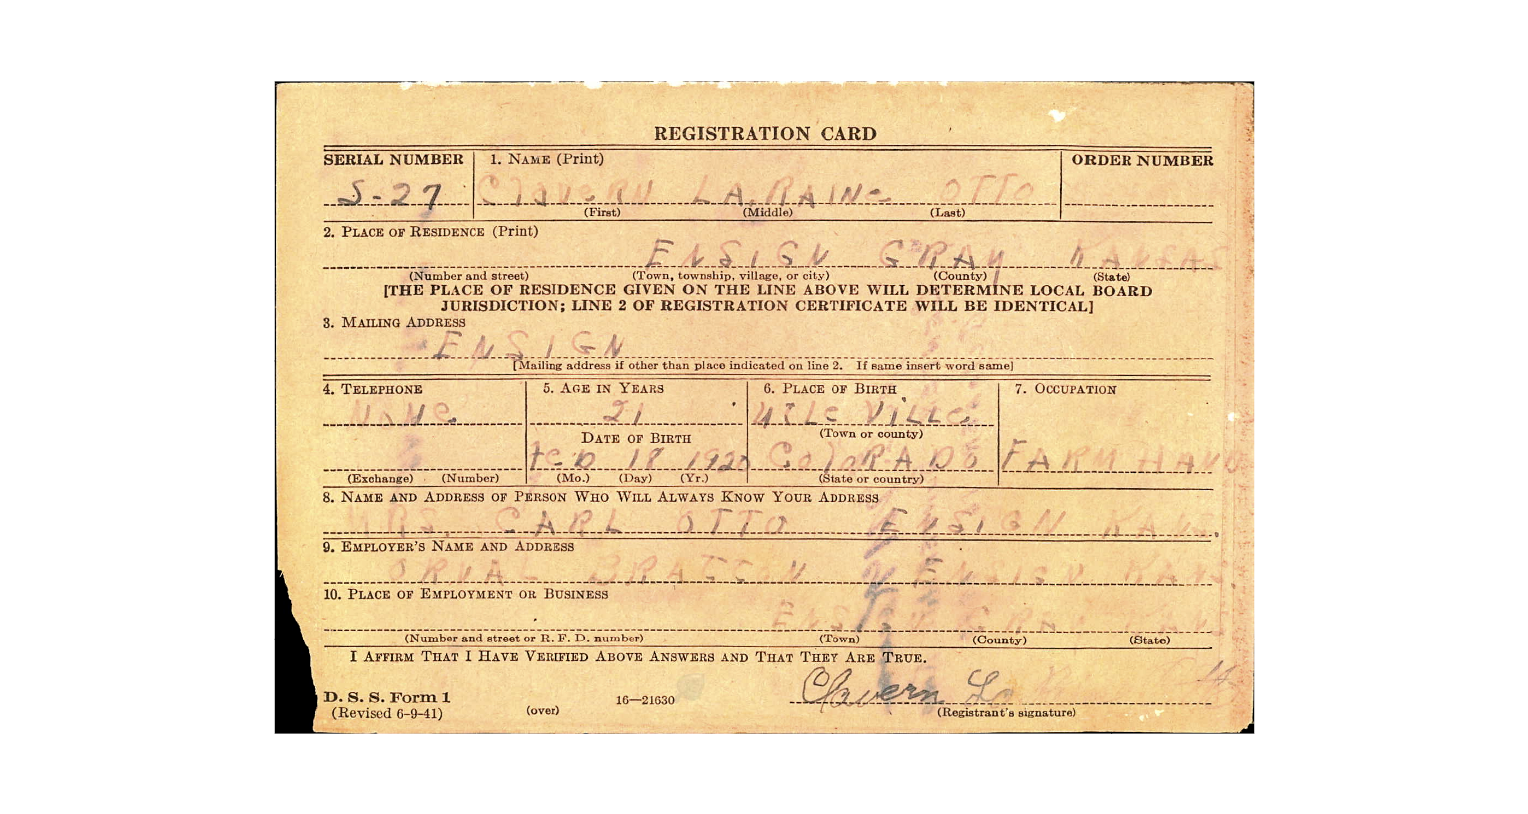 REGISTRATION CARD
SERIAL NUMBER 1. NAME (Print) ORDER NUMBER
S-27 Clavern LARAINe OTTO
(First) (Middle) (Last)
2. PLACE OF RESIDENCE (Print)
ENSIGN GRAY KANSAS
(Number and street) (Town, township, village, or city) (County) (State)
[THE PLACE OF RESIDENCE GIVEN ON THE LINE ABOVE WILL DETERMINE LOCAL BOARD
JURISDICTION; LINE 2 OF REGISTRATION CERTIFICATE WILL BE IDENTICAL]
3. MAILING ADDRESS
ENSIGN
[Mailing address if other than place indicated on line 2. If same insert word same]
4. TELEPHONE 5. AGE IN YEARS 6. PLACE OF BIRTH 7. OCCUPATION
NONe 21 VILLe
(Town or county)
DATE OF BIRTH
Feb 18 1920 ColoRADO FARM HAND
(Exchange) (Number) (Mo.) (Day) (Yr.) (State or country)
8. NAME AND ADDRESS OF PERSON WHO WILL ALWAYS KNOW YOUR ADDRESS
MRS. CARL OTTO ENSIGN KANS.
9. EMPLOYER'S NAME AND ADDRESS
ORVAL BRATTON ENSIGN KANS.
10. PLACE OF EMPLOYMENT OR BUSINESS
ENSIGN GRAY KANS
(Number and street or R. F. D. number) (Town) (County) (State)
I AFFIRM THAT I HAVE VERIFIED ABOVE ANSWERS AND THAT THEY ARE TRUE.
Clavern La Raine Otto
D. S. S. Form 1 16—21630
(Revised 6-9-41) (over) (Registrant's signature)